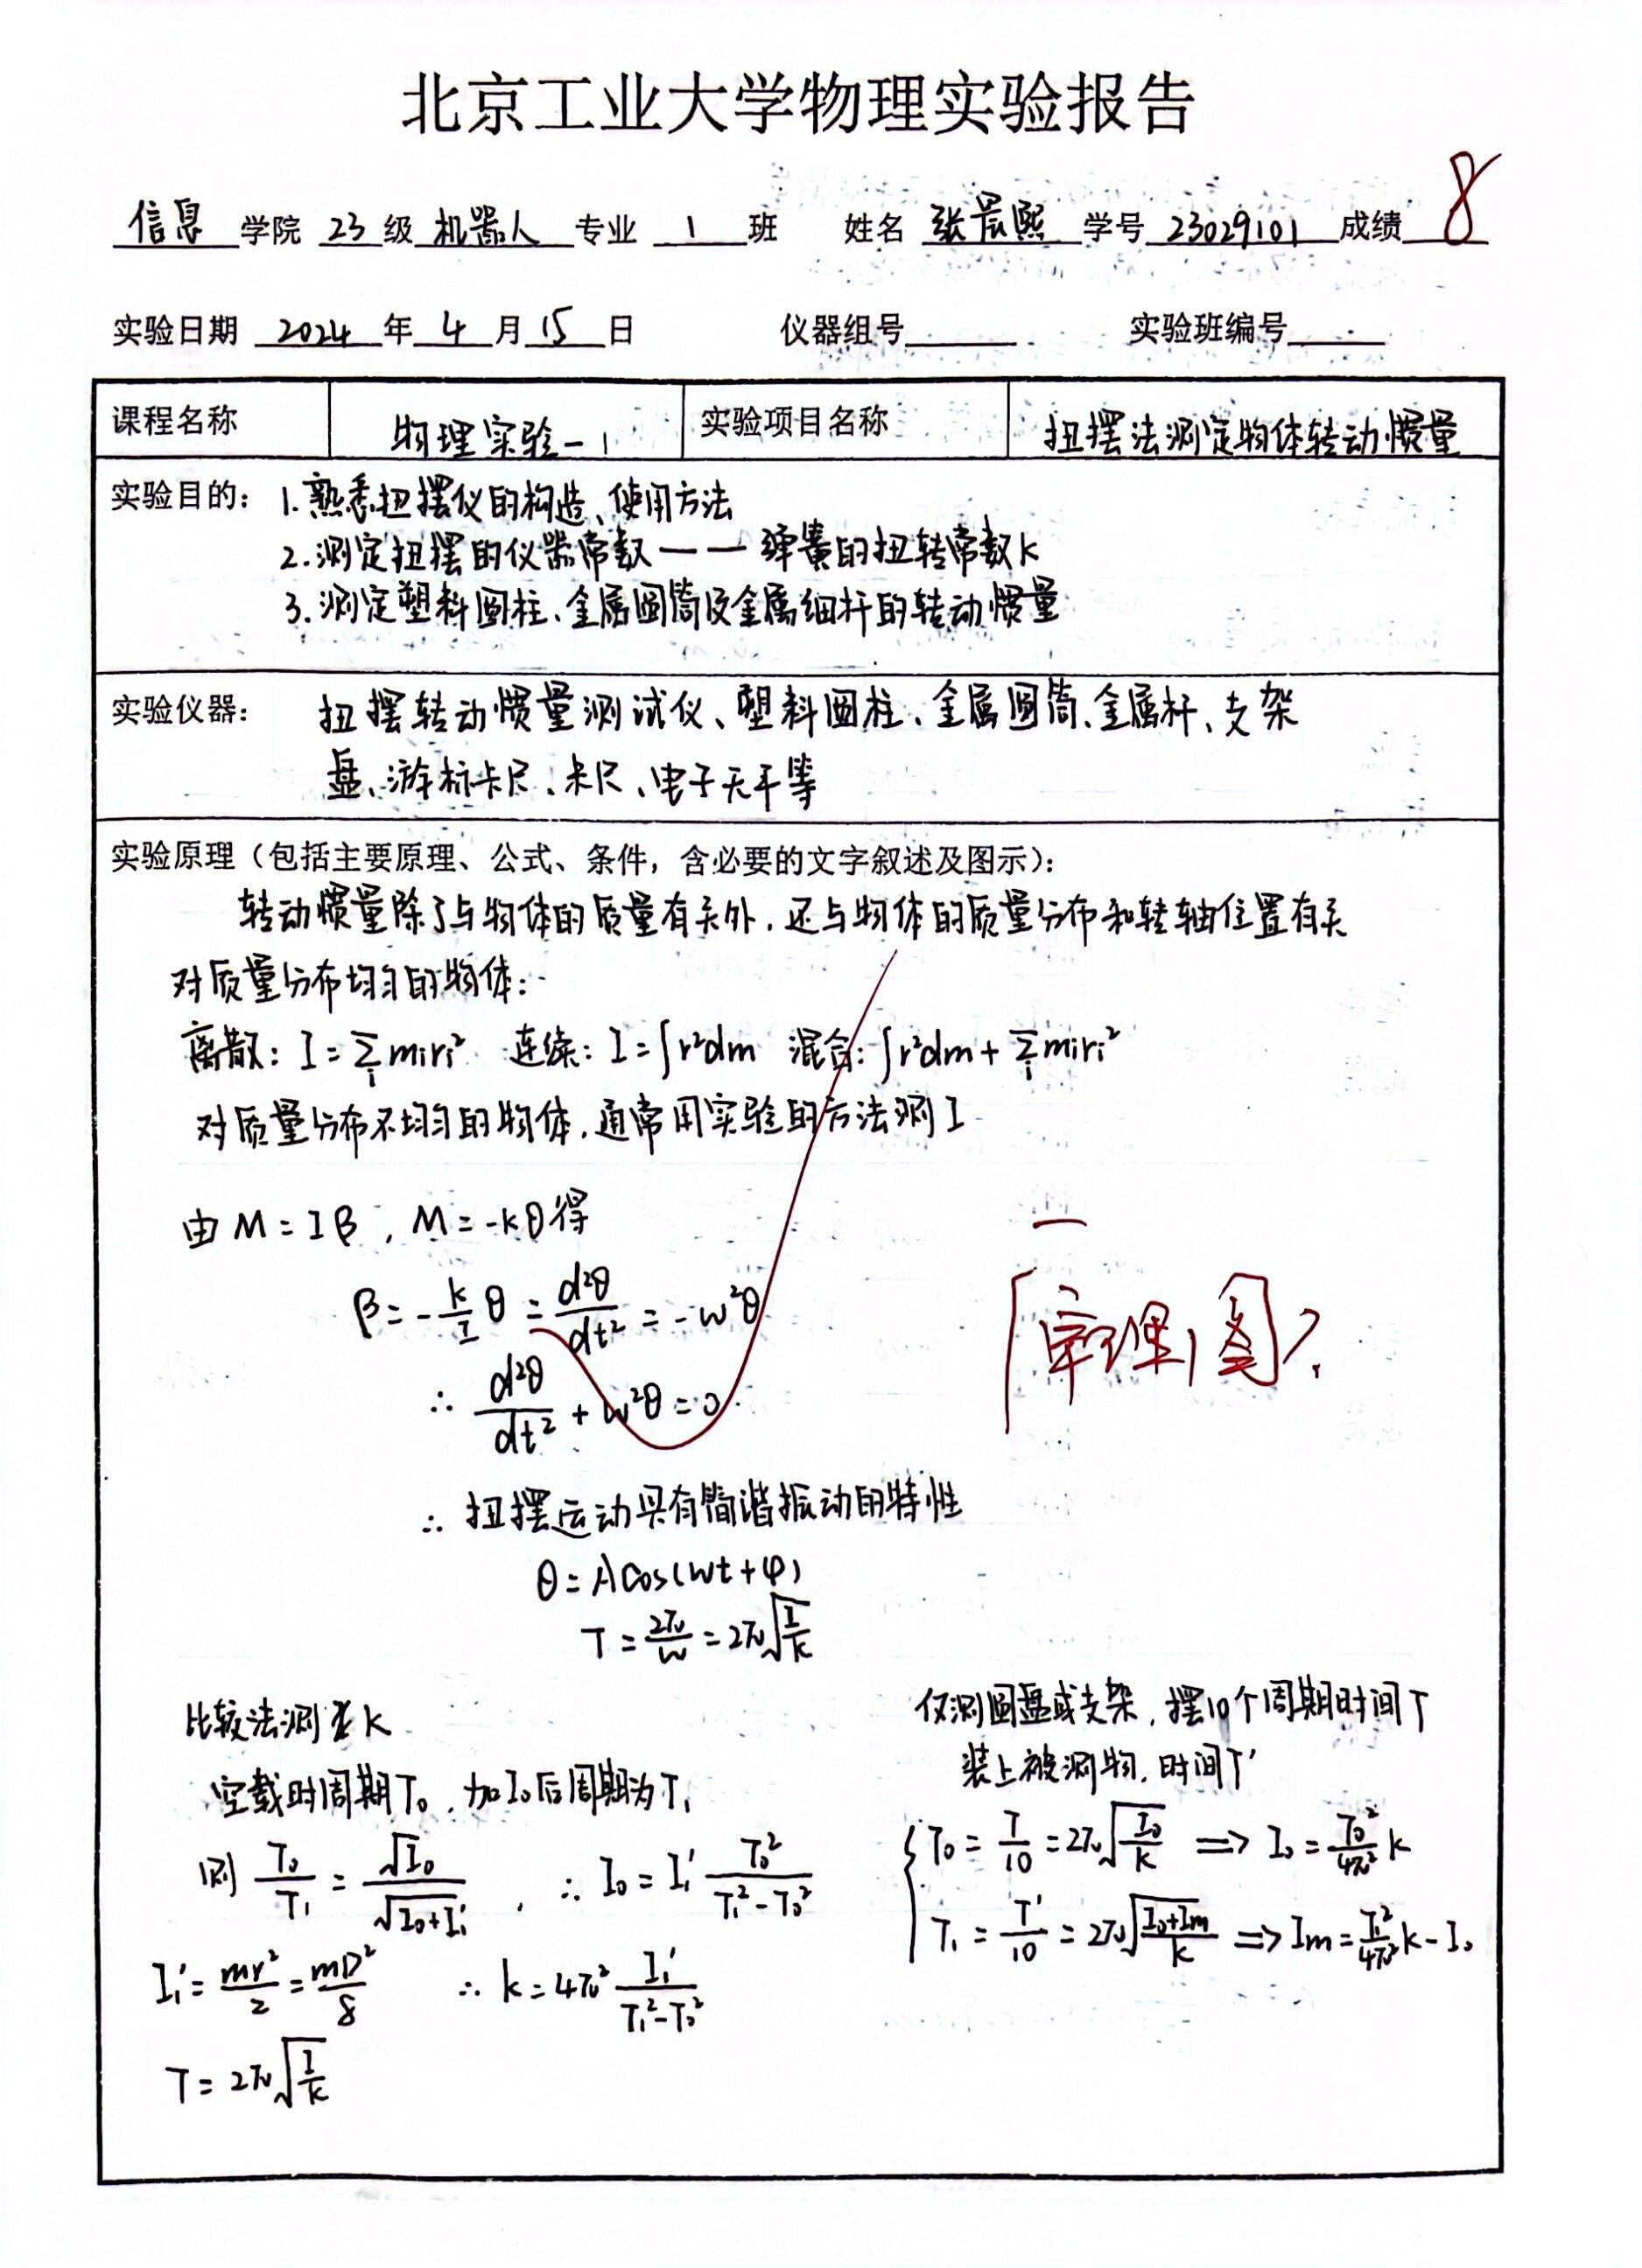 北京工业大学物理实验报告
信息学院 23级 机器人专业 1班 姓名 张晨熙 学号 23029101 成绩 8
实验日期 2024年4月15日 仪器组号 实验班编号
课程名称 物理实验-1 实验项目名称 扭摆法测定物体转动惯量
实验目的: 1.熟悉扭摆仪的构造、使用方法
2.测定扭摆的仪器常数——弹簧的扭转常数k
3.测定塑料圆柱、金属圆筒及金属细杆的转动惯量
实验仪器: 扭摆转动惯量测试仪、塑料圆柱、金属圆筒、金属杆、支架
盘、游标卡尺、米尺、电子天平等
实验原理（包括主要原理、公式、条件，含必要的文字叙述及图示）:
转动惯量除了与物体的质量有关外，还与物体的质量分布和转轴位置有关
对质量分布均匀的物体:
离散: I=∑ᵢmiri² 连续: I=∫r²dm 混合: ∫r²dm+∑ᵢmiri²
对质量分布不均匀的物体，通常用实验的方法测I
由M=Iβ, M=-kθ得
β=-k/I θ=d²θ/dt²=-w²θ
∴ d²θ/dt²+w²θ=0
原理图?
∴ 扭摆运动具有简谐振动的特性
θ=Acos(wt+φ)
T=2π/w=2π√(I/k)
比较法测k
空载时周期T₀，加I₀后周期为T₁
则 T₀/T₁=√I₀/√(I₀+I₁'), ∴ I₀=I₁' T₀²/(T₁²-T₀²)
I₁'=mr²/2=mD²/8 ∴ k=4π² I₁'/(T₁²-T₀²)
T=2π√(I/k)
仅测圆盘或支架，摆10个周期时间T
装上被测物，时间T'
{T₀=T/10=2π√(I₀/k) ⟹ I₀=T₀²/4π² k
T₁=T'/10=2π√((I₀+Im)/k) ⟹ Im=T₁²/4π² k-I₀